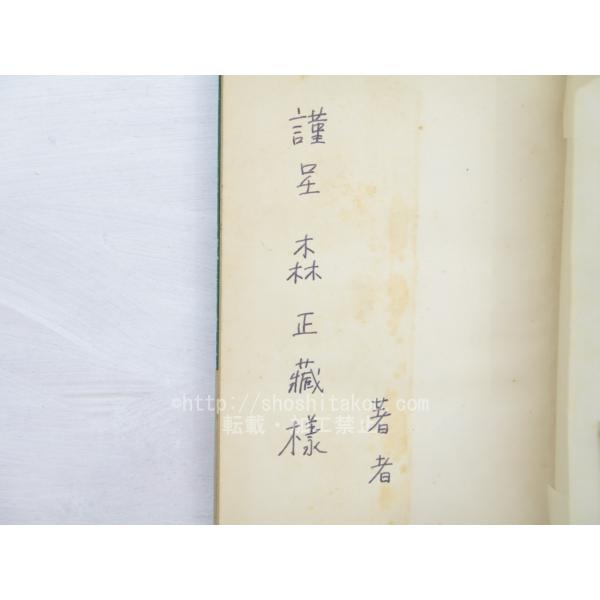 謹呈 森正藏樣
著者
©http://shoshitakou.com
転載・加工禁止